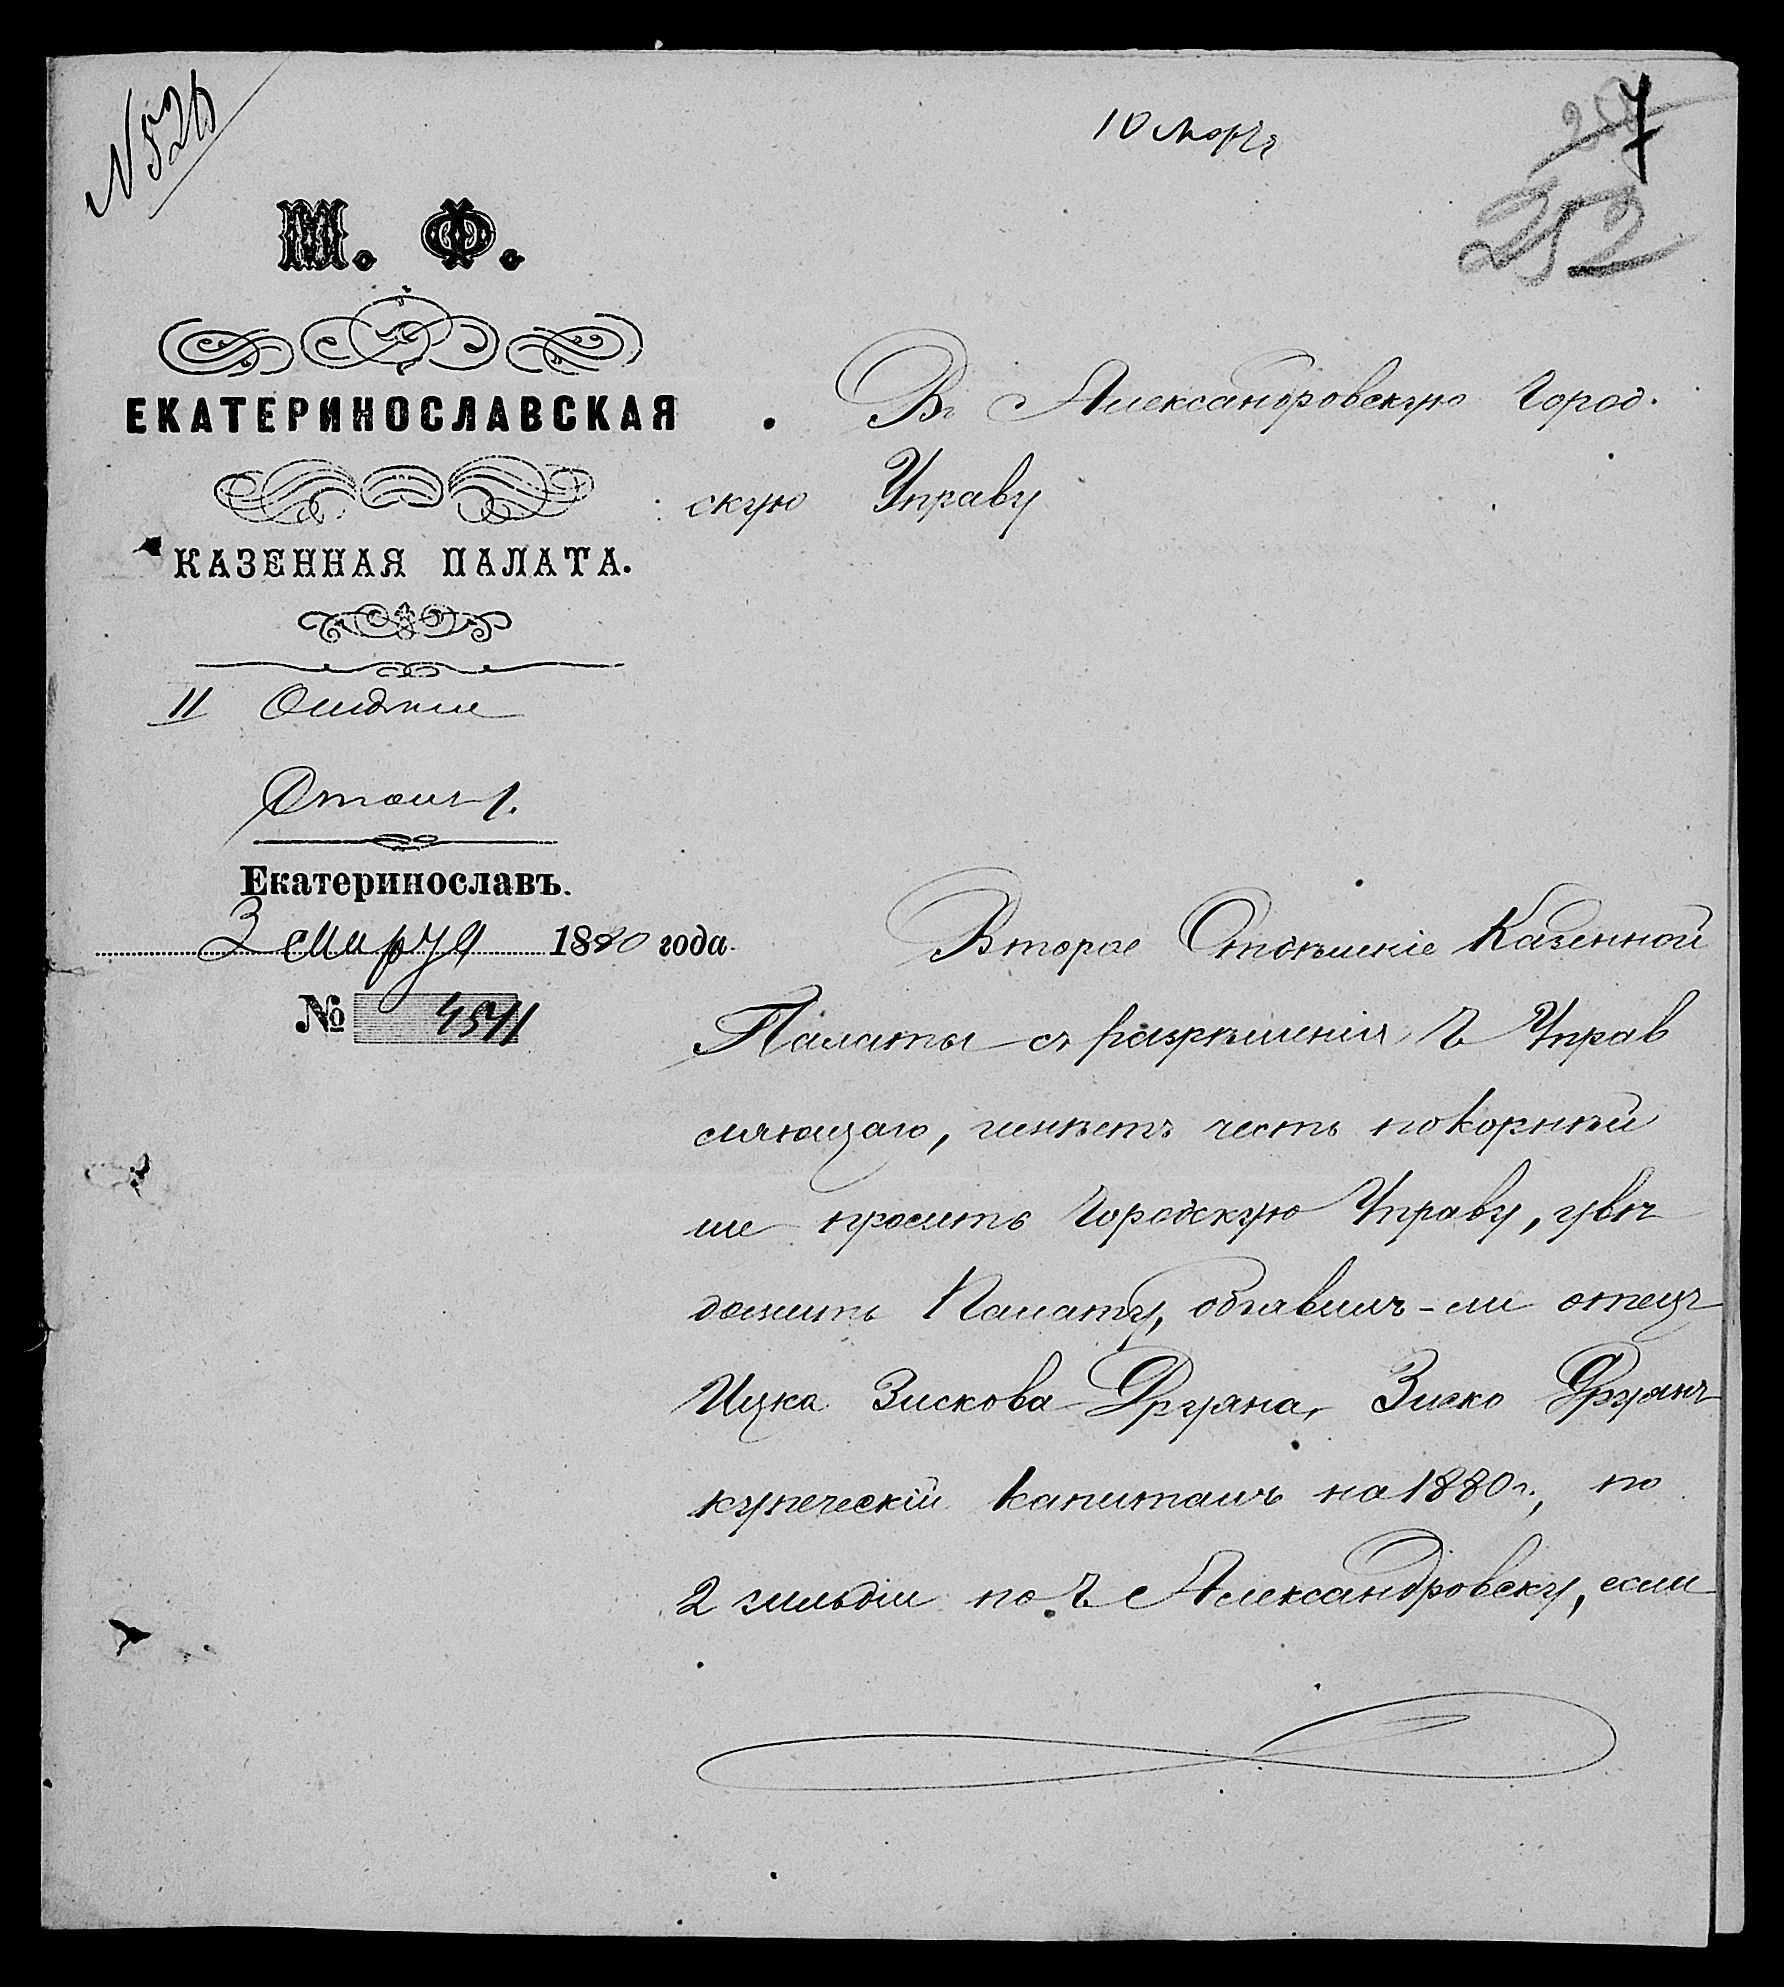 № 526
10 марта
7
252
М. Ф.
ЕКАТЕРИНОСЛАВСКАЯ
КАЗЕННАЯ ПАЛАТА.
II Отдѣленіе
Столъ 1.
Екатеринославъ.
3 марта 1880 года.
№ 4511
Въ Александровскую Город.
скую Управу
Второе Отдѣленіе Казенной
Палаты съ разрѣшенія Г. Управ
ляющаго, имѣетъ честь покорнѣй
ше просить Городскую Управу, увѣ
домить Палату, объявилъ-ли отецъ
Ицка Зискова Фруяна, Зиско Фруянъ
купеческій капиталъ на 1880 г., по
2 гильдіи по г. Александровску, если